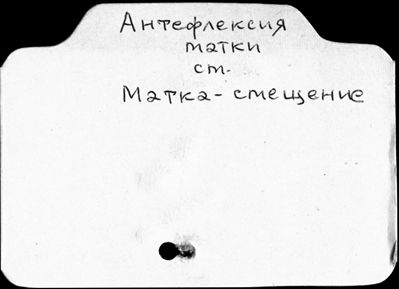 Антефлексия
матки
ст.
Матка - смещение